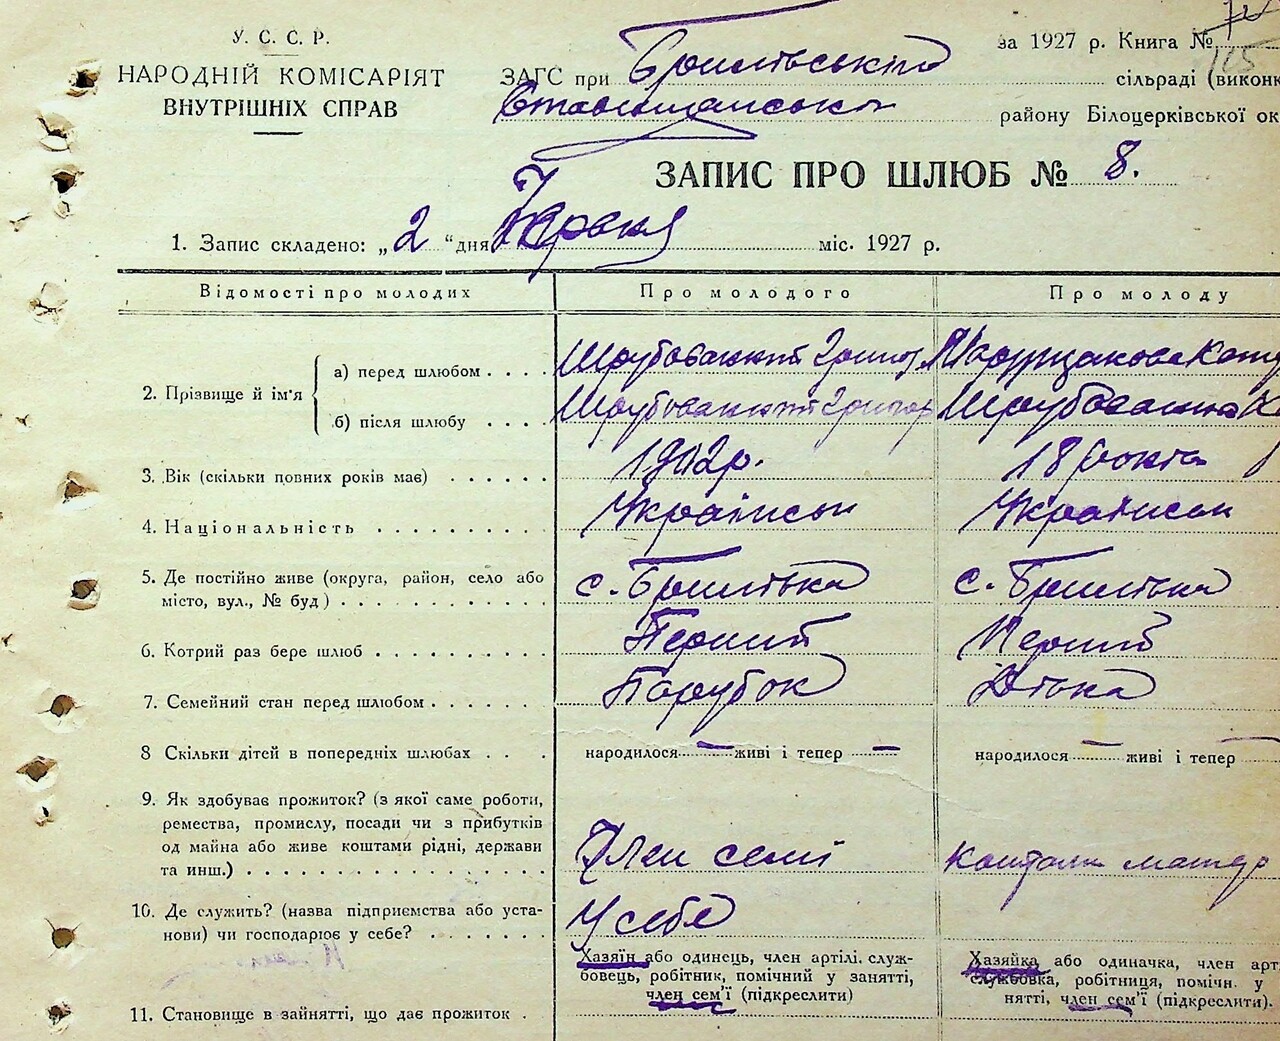 У. С. С. Р.
НАРОДНІЙ КОМІСАРІЯТ
ВНУТРІШНІХ СПРАВ
за 1927 р. Книга №
105
ЗАГС при Брилівській сільраді (виконк
Ставищанського району Білоцерківської ок
ЗАПИС ПРО ШЛЮБ № 8.
1. Запис складено: „ 2 “ дня міс. 1927 р.
Відомості про молодих
Про молодого
Про молоду
2. Прізвище й ім'я
а) перед шлюбом . . . .
б) після шлюбу . . . .
3. Вік (скільки повних років має) . . . . . . 1902р. 18 років
4. Національність . . . . . . . . . Українець Українка
5. Де постійно живе (округа, район, село або
місто, вул., № буд) . . . . . . . . . . . с. Брилівка с. Брилівка
6. Котрий раз бере шлюб . . . . . . . . . . Перший Перший
7. Семейний стан перед шлюбом . . . . . . . Парубок Дівка
8 Скільки дітей в попередніх шлюбах . . . народилося — живі і тепер — народилося — живі і тепер —
9. Як здобував прожиток? (з якої саме роботи,
ремества, промислу, посади чи з прибутків
од майна або живе коштами рідні, держави
та инш.) . . . . . . . . . . . . . . . . . Член семї
10. Де служить? (назва підприємства або уста-
нови) чи господарює у себе? . . . . . . . У себе
Хазяїн або одинець, член артілі. служ-
бовець, робітник, помічний у занятті,
член сем'ї (підкреслити)
Хазяйка або одиначка, член арт
службовка, робітниця, помічн. у
нятті, член сем'ї (підкреслити).
11. Становище в зайнятті, що дає прожиток .